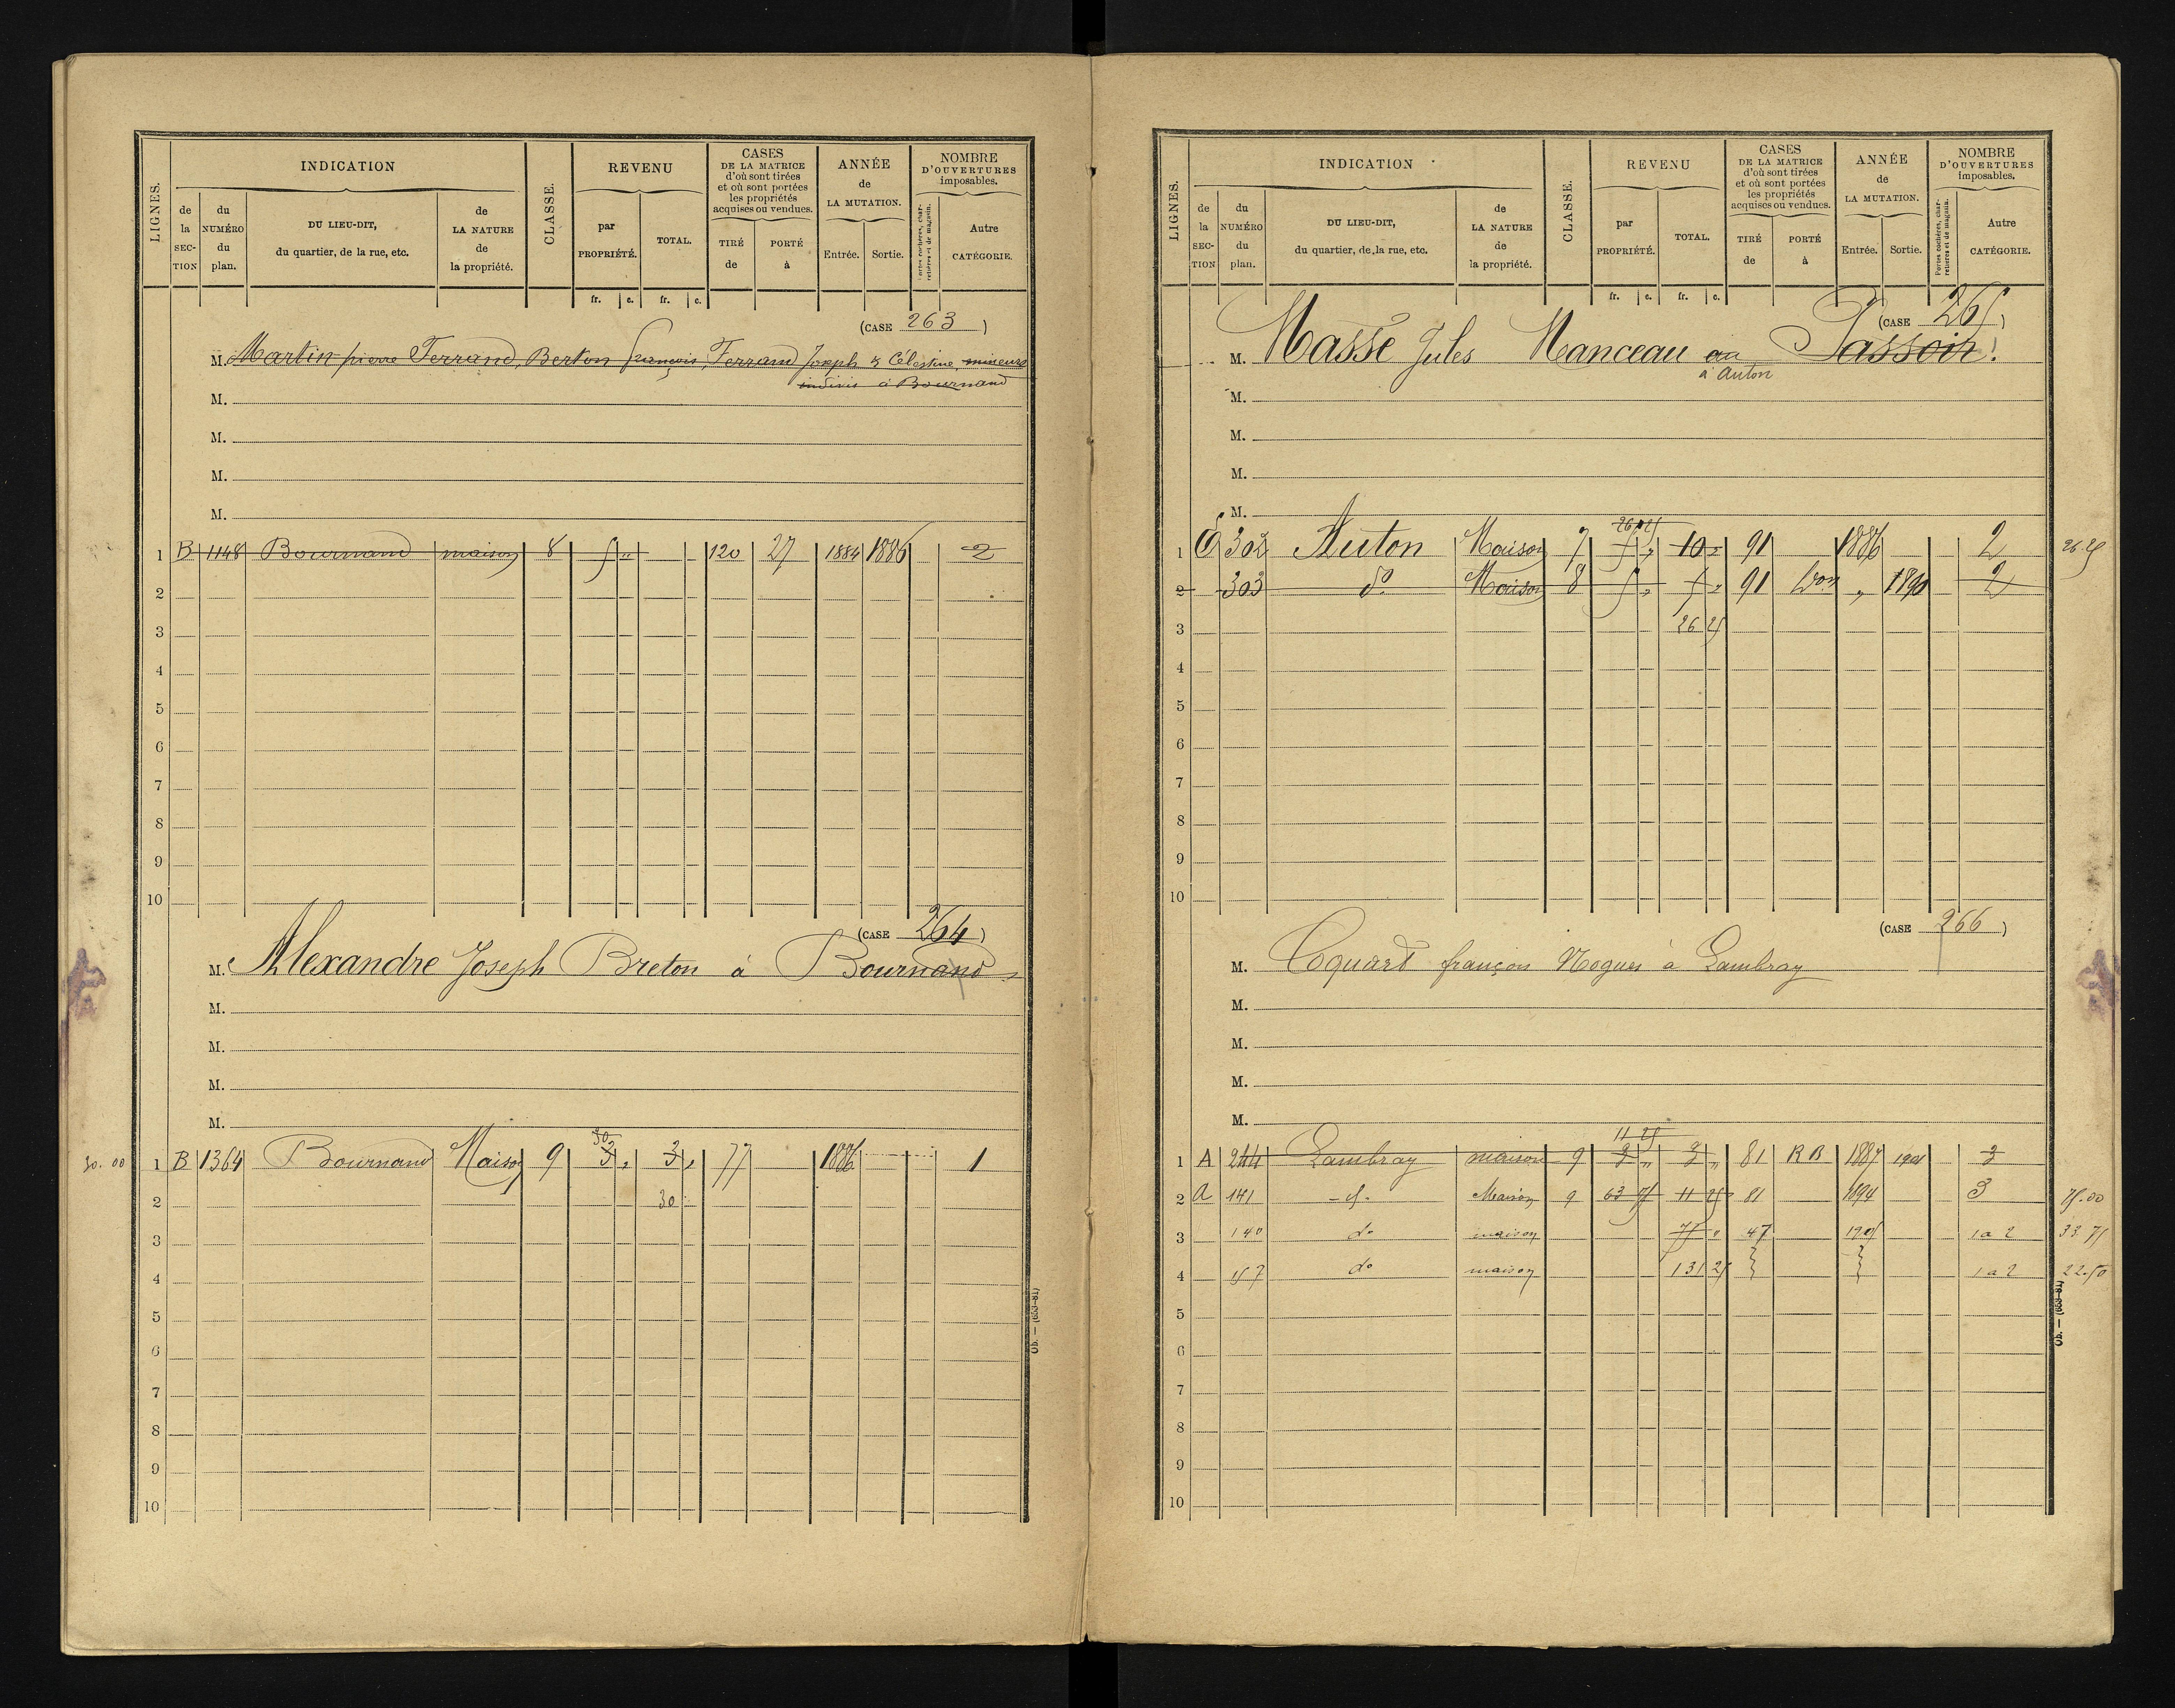 LIGNES.
INDICATION
de la SECTION
du NUMÉRO du plan.
DU LIEU-DIT, du quartier, de la rue, etc.
de LA NATURE de la propriété.
CLASSE.
REVENU
par PROPRIÉTÉ.
TOTAL.
fr. c. fr. c.
CASES DE LA MATRICE d'où sont tirées et où sont portées les propriétés acquises ou vendues.
TIRÉ de
PORTÉ à
ANNÉE de LA MUTATION.
Entrée. Sortie.
NOMBRE D'OUVERTURES imposables.
Portes cochères, charretières et de magasin.
Autre CATÉGORIE.
(CASE 263)
M. Martin pierre Ferrand, Berton françois, Ferrand Joseph & Célestine, mineurs
indivis à Bournand
M.
M.
M.
M.
1 B 1148 Bournand maison 8 5 " 120 27 1884 1886 2
2
3
4
5
6
7
8
9
10
(CASE 264)
M. Alexandre Joseph Breton à Bournand
M.
M.
M.
M.
30
30.00 1 B 1364 Bournand Maison 9 3 " 3 " 77 1886 1
2 30
3
4
5
6
7
8
9
10
LIGNES.
INDICATION
de la SECTION
du NUMÉRO du plan.
DU LIEU-DIT, du quartier, de la rue, etc.
de LA NATURE de la propriété.
CLASSE.
REVENU
par PROPRIÉTÉ.
TOTAL.
fr. c. fr. c.
CASES DE LA MATRICE d'où sont tirées et où sont portées les propriétés acquises ou vendues.
TIRÉ de
PORTÉ à
ANNÉE de LA MUTATION.
Entrée. Sortie.
NOMBRE D'OUVERTURES imposables.
Portes cochères, charretières et de magasin.
Autre CATÉGORIE.
(CASE 265)
M. Massé Jules Manceau au Passoir.
à Anton
M.
M.
M.
M.
26 25
1 E 302 Anton Maison 7 5 " 10 " 91 1886 2 26.25
2 303 do Maison 8 5 " 5 " 91 " 1890 2
3 26 25
4
5
6
7
8
9
10
(CASE 266)
M. Coquard françois Nogues à Lambray
M.
M.
M.
M.
11 25
1 A 244 Lambray maison 9 3 " 3 " 81 R B 1887 1901 3
2 A 141 do Maison 9 63 75 11 25 81 1894 3 75.00
3 140 do maison 75 " 47 1905 1 a 2 33.75
4 157 do maison 131 25 1 a 2 22.50
5
6
7
8
9
10